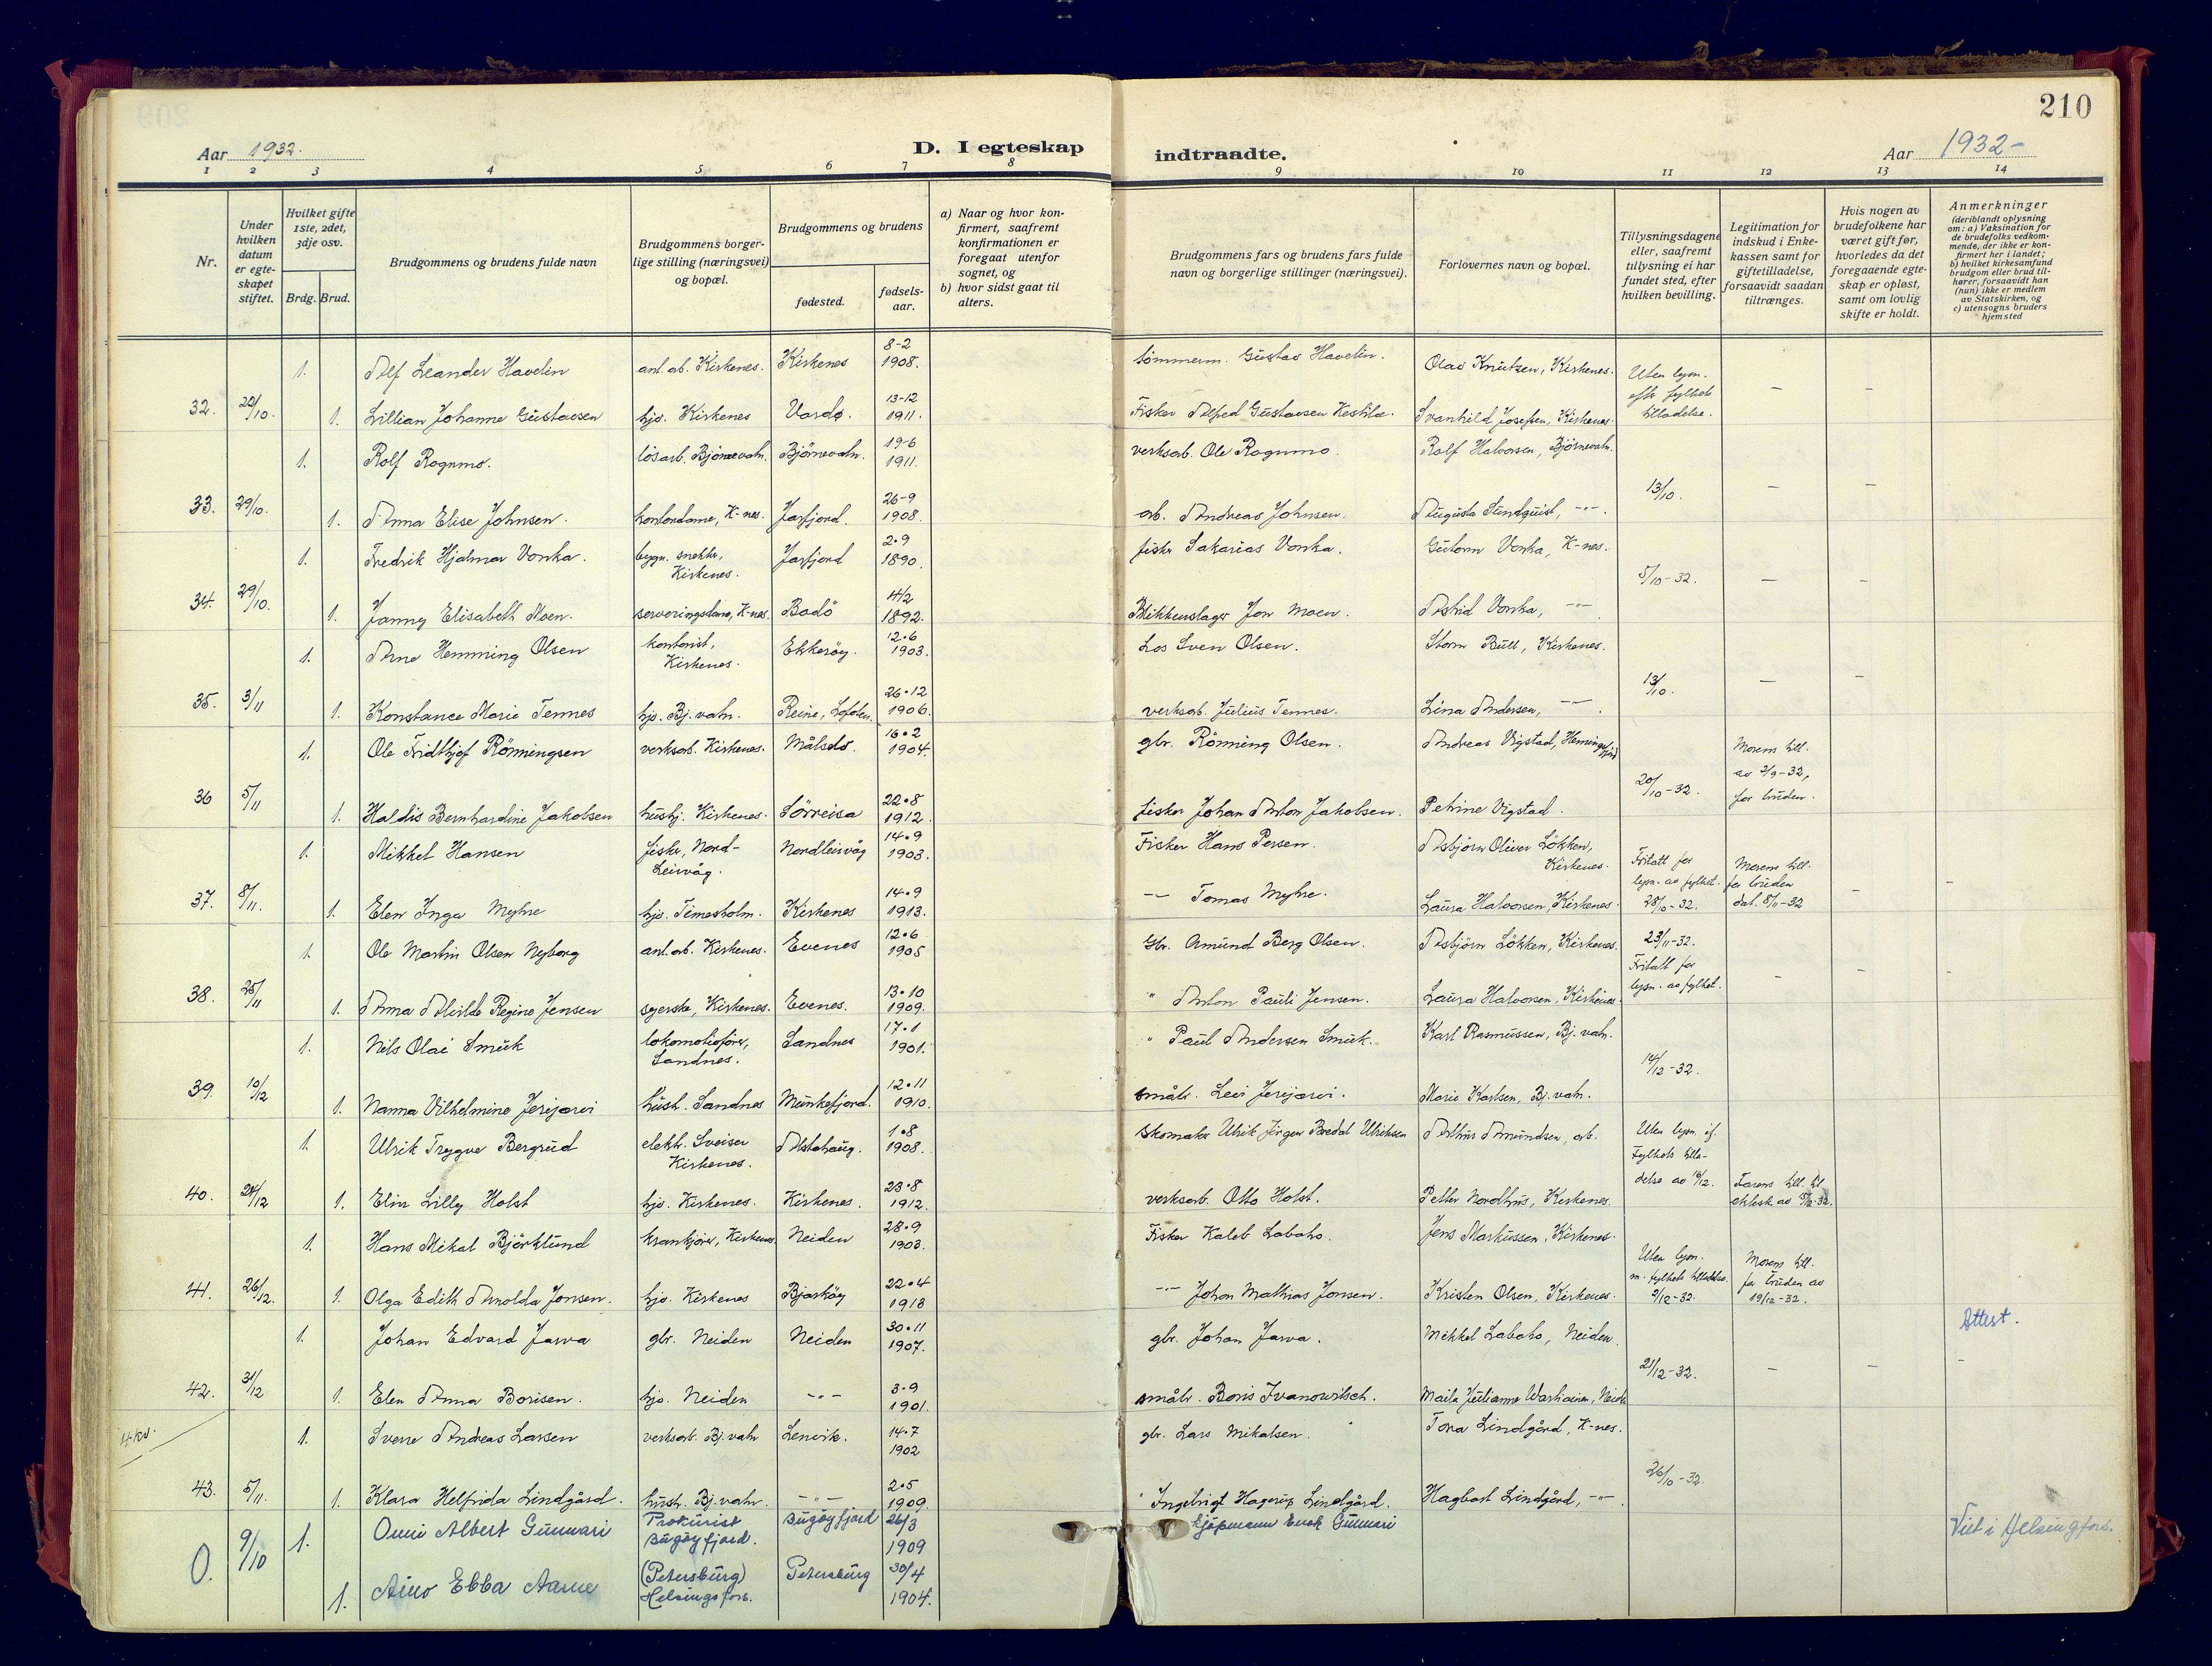 210
Aar 1932.
D. I egteskap
indtraadte.
Aar 1932-
1 2 3 4 5 6 7 8 9 10 11 12 13 14
Nr.
Under hvilken datum er egteskapet stiftet.
Hvilket gifte 1ste, 2det, 3dje osv.
Brdg. Brud.
Brudgommens og brudens fulde navn
Brudgommens borgerlige stilling (næringsvei) og bopæl.
Brudgommens og brudens
fødested.
fødselsaar.
a) Naar og hvor konfirmert, saafremt konfirmationen er foregaat utenfor sognet, og
b) hvor sidst gaat til alters.
Brudgommens fars og brudens fars fulde navn og borgerlige stillinger (næringsvei).
Forlovernes navn og bopæl.
Tillysningsdagene eller, saafremt tillysning ei har fundet sted, efter hvilken bevilling.
Legitimation for indskud i Enkekassen samt for giftetilladelse, forsaavidt saadan tiltrænges.
Hvis nogen av brudefolkene har været gift før, hvorledes da det foregaaende egteskap er opløst, samt om lovlig skifte er holdt.
Anmerkninger (deriblandt oplysning om: a) Vaksination for de brudefolks vedkommende, der ikke er konfirmert her i landet; b) hvilket kirkesamfund brudgom eller brud tilhører, forsaavidt han (hun) ikke er medlem av Statskirken, og c) utensogns bruders hjemsted
1. Alf Leander Havelin anl. arb. Kirkenes. Kirkenes 8-2 1908. tömmerm. Gustav Havelin. Olav Knutzen, Kirkenes. Uten lysn. efter fylkets tilladelse. - -
32. 22/10. 1. Lillian Johanne Gustavsen hjv. Kirkenes Vardø. 13-12 1911. Fisker Alfred Gustavsen Kestila. Svanhild Josefsen, Kirkenes.
1. Rolf Rognmo. lösarb. Björnevatn. Björnevatn. 19-6 1911. verksarb. Ole Rognmo. Rolf Halvorsen, Bjørnevatn.
33. 29/10. 1. Anna Elise Johnsen. kontordame, K-nes. Jarfjord. 26-9 1908. arb. Andreas Johnsen. Augusta Sundquist, -"-. 13/10. - -
1. Fredrik Hjalmar Vonka. bygn. snekker, Kirkenes. Jarfjord 2.9 1890. fisker Sakarias Vonka. Gutorm Vonka, K-nes.
34. 29/10. 1. Janny Elisabeth Moen. serveringsdame, K-nes. Bodö 4/2 1892. Blikkenslager Jon Moen. Astrid Vonka, -"- 5/10-32. - -
1. Arne Hemming Olsen kontorist, Kirkenes. Ekkeröy. 12.6 1903. Los Sven Olsen. Storm Bull, Kirkenes.
35. 3/11 1. Konstance Marie Tennes hjv. Bj. vatn. Reine, Lofoten. 26.12 1906. verksarb. Julius Tennes. Lina Andersen, -"-. 13/10. - -
1. Ole Fridthjof Rönningsen verksarb. Kirkenes. Målselv. 16.2 1904. gbr. Rönning Olsen. Andreas Vigstad,
36 5/11 1. Haldis Bernhardine Jakobsen hushj. Kirkenes. Sörreisa 22.8 1912. fisker Johan Anton Jakobsen. Petrine Vigstad. 20/10-32. Morens till. av 2/9-32, for bruden.
1. Mikkel Hansen fisker, Nord-Leirvåg. Nordleirvåg 14.9 1903. Fisker Hans Persen. Asbjörn Oliver Lökken, Kirkenes.
37. 8/11. 1. Elen Inga Myhre hjv. Timesholm. Kirkenes 14.9 1913. -"- Tomas Myhre. Laura Halvorsen, Kirkenes. Fritatt for lysn. av fylket. 28/10-32. Morens till. for bruden dat. 8/11-32 - -
1. Ole Martin Olsen Nyborg anl. arb. Kirkenes. Evenes 12.6 1905 Gbr. Amund Berg Olsen. Asbjörn Lökken, Kirkenes. 23/11-32. Fritatt for lysn. av fylket. - - -
38. 25/11 1. Anna Alvilde Regine Jensen syerske, Kirkenes. Evenes. 13.10 1909. " Anton Pauli Jensen. Laura Halvorsen, Kirkenes.
1. Nils Olai Smuk lokomotivförer, Sandnes. Sandnes 17.1 1901. " Paul Andersen Smuk. Karl Rasmussen, Bj. vatn.
39. 10/12 1. Nanna Vilhelmine Jerijærvi hush. Sandnes Munkefjord. 12.11 1910. småbr. Levi Jerijærvi. Marie Karlsen, Bj. vatn. 14/12-32.
1. Ulrik Trygve Bergrud elektr. Sveiser Kirkenes. Alstahaug. 1.8 1908. Skomaker Ulrik Jörgen Bredal Ulriksen Arthur Amundsen, arb. Uten lysn. if. Fylkets tilladelse av 16/12.
40. 24/12 1. Elin Lilly Holst hjv. Kirkenes. Kirkenes. 23.8 1912. verksarb. Otto Holst. Petter Nordhus, Kirkenes. Farens till. til
1. Hans Mikal Björklund krankjörer, Kirkenes. Neiden 28.9 1903. Fisker Kaleb Labaho. Jens Markussen, Kirkenes.
41. 26/12. 1. Olga Edith Arnolda Jonsen. hjv. Kirkenes Bjarköy 22.4 1913 -"- Johan Mathias Jonsen. Kristen Olsen, Kirkenes. Uten lysn. m. fylkets tilladelse. 9/12-32. Morens till. for bruden av 19/12-32.
1. Johan Edvard Jarva gbr. Neiden Neiden 30.11 1907. gbr. Johan Jarva. Mikkel Labaho, Neiden. Attest.
42. 31/12 1. Elen Anna Borisen. hjv. Neiden -"- 3.9 1901. småbr. Boris Ivanowitsch. Maila Julianne 21/12-32. - - -
4 kv.
1. Sverre Andreas Larsen verksarb. Bj. vatn Lenvik. 14.7 1902 gbr. Lars Mikalsen. Tora Lindgård, K-nes.
43. 5/11. 1. Klara Helfrida Lindgård. hush. Bj. vatn. -"- 2.5 1909. " Ingebrigt Hagerup Lindgård. Hagbart Lindgård, -"-. 26/10-32.
O. 9/10 1. Onni Albert Gunnari Prokurist Bugöyfjord. Bugöyfjord 26/3 1909 kjöpmann Enok Gunnari Viet i Helsingfors.
1. Aino Ebba Aarne (Petersburg) Helsingfors. Petersburg 30/4 1904.